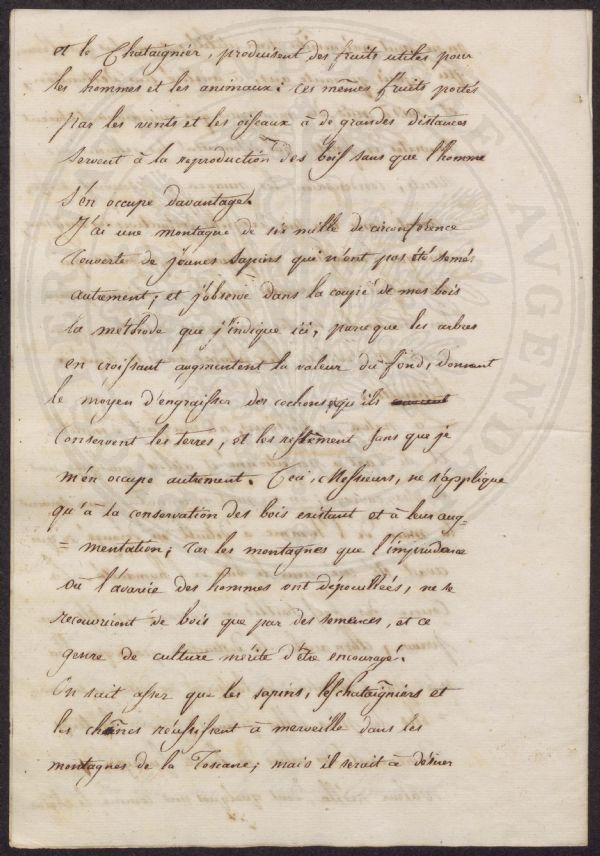 et le Chataignier, produisent des fruits utiles pour
les hommes et les animaux: ces mêmes fruits portés
par les vents et les oiseaux à de grandes distances
servent à la reproduction des bois sans que l'homme
s'en occupe davantage.
J'ai une montagne de six mille de circonférence
couverte de jeunes sapins qui n'ont pas été semés
autrement, et j'observe dans la coupe de mes bois
la méthode que j'indique ici, parceque les arbres
en croissant augmentent la valeur du fond, donnent
le moyen d'engraisser des cochons, qu'ils
conservent les terres, et les resément sans que je
m'en occupe autrement. Ceci, Messieurs, ne s'applique
qu'à la conservation des bois existant et à leur aug=
= mentation; car les montagnes que l'imprudence
ou l'avarice des hommes ont dépouillées, ne se
recouvriront de bois que par des semences, et ce
genre de culture mérite d'être encouragé.
On sait assez que les sapins, les chataigniers et
les chênes réussissent à merveille dans les
montagnes de la Toscane; mais il serait à désirer